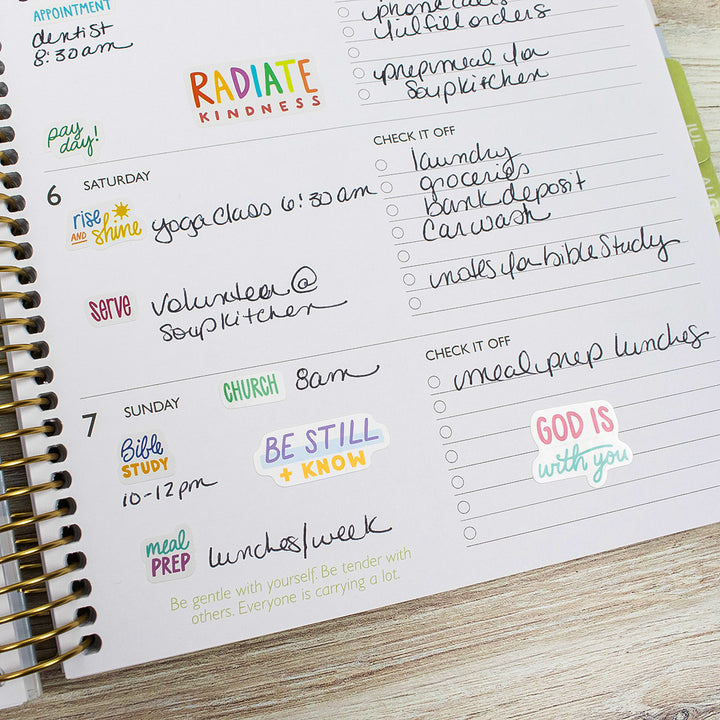 APPOINTMENT
dentist
8:30am
RADIATE
KINDNESS
phone calls
fulfill orders
prep meal for
Soup kitchen
pay
day!
6 SATURDAY
rise
AND shine
yoga class 6:30am
serve
volunteer @
soup kitchen
CHECK IT OFF
laundry
groceries
bank deposit
Car wash
notes for bible study
7 SUNDAY
CHURCH 8am
Bible
STUDY
10-12pm
BE STILL
+ KNOW
meal
PREP
lunches/week
CHECK IT OFF
meal prep lunches
GOD IS
with you
Be gentle with yourself. Be tender with
others. Everyone is carrying a lot.
JUL